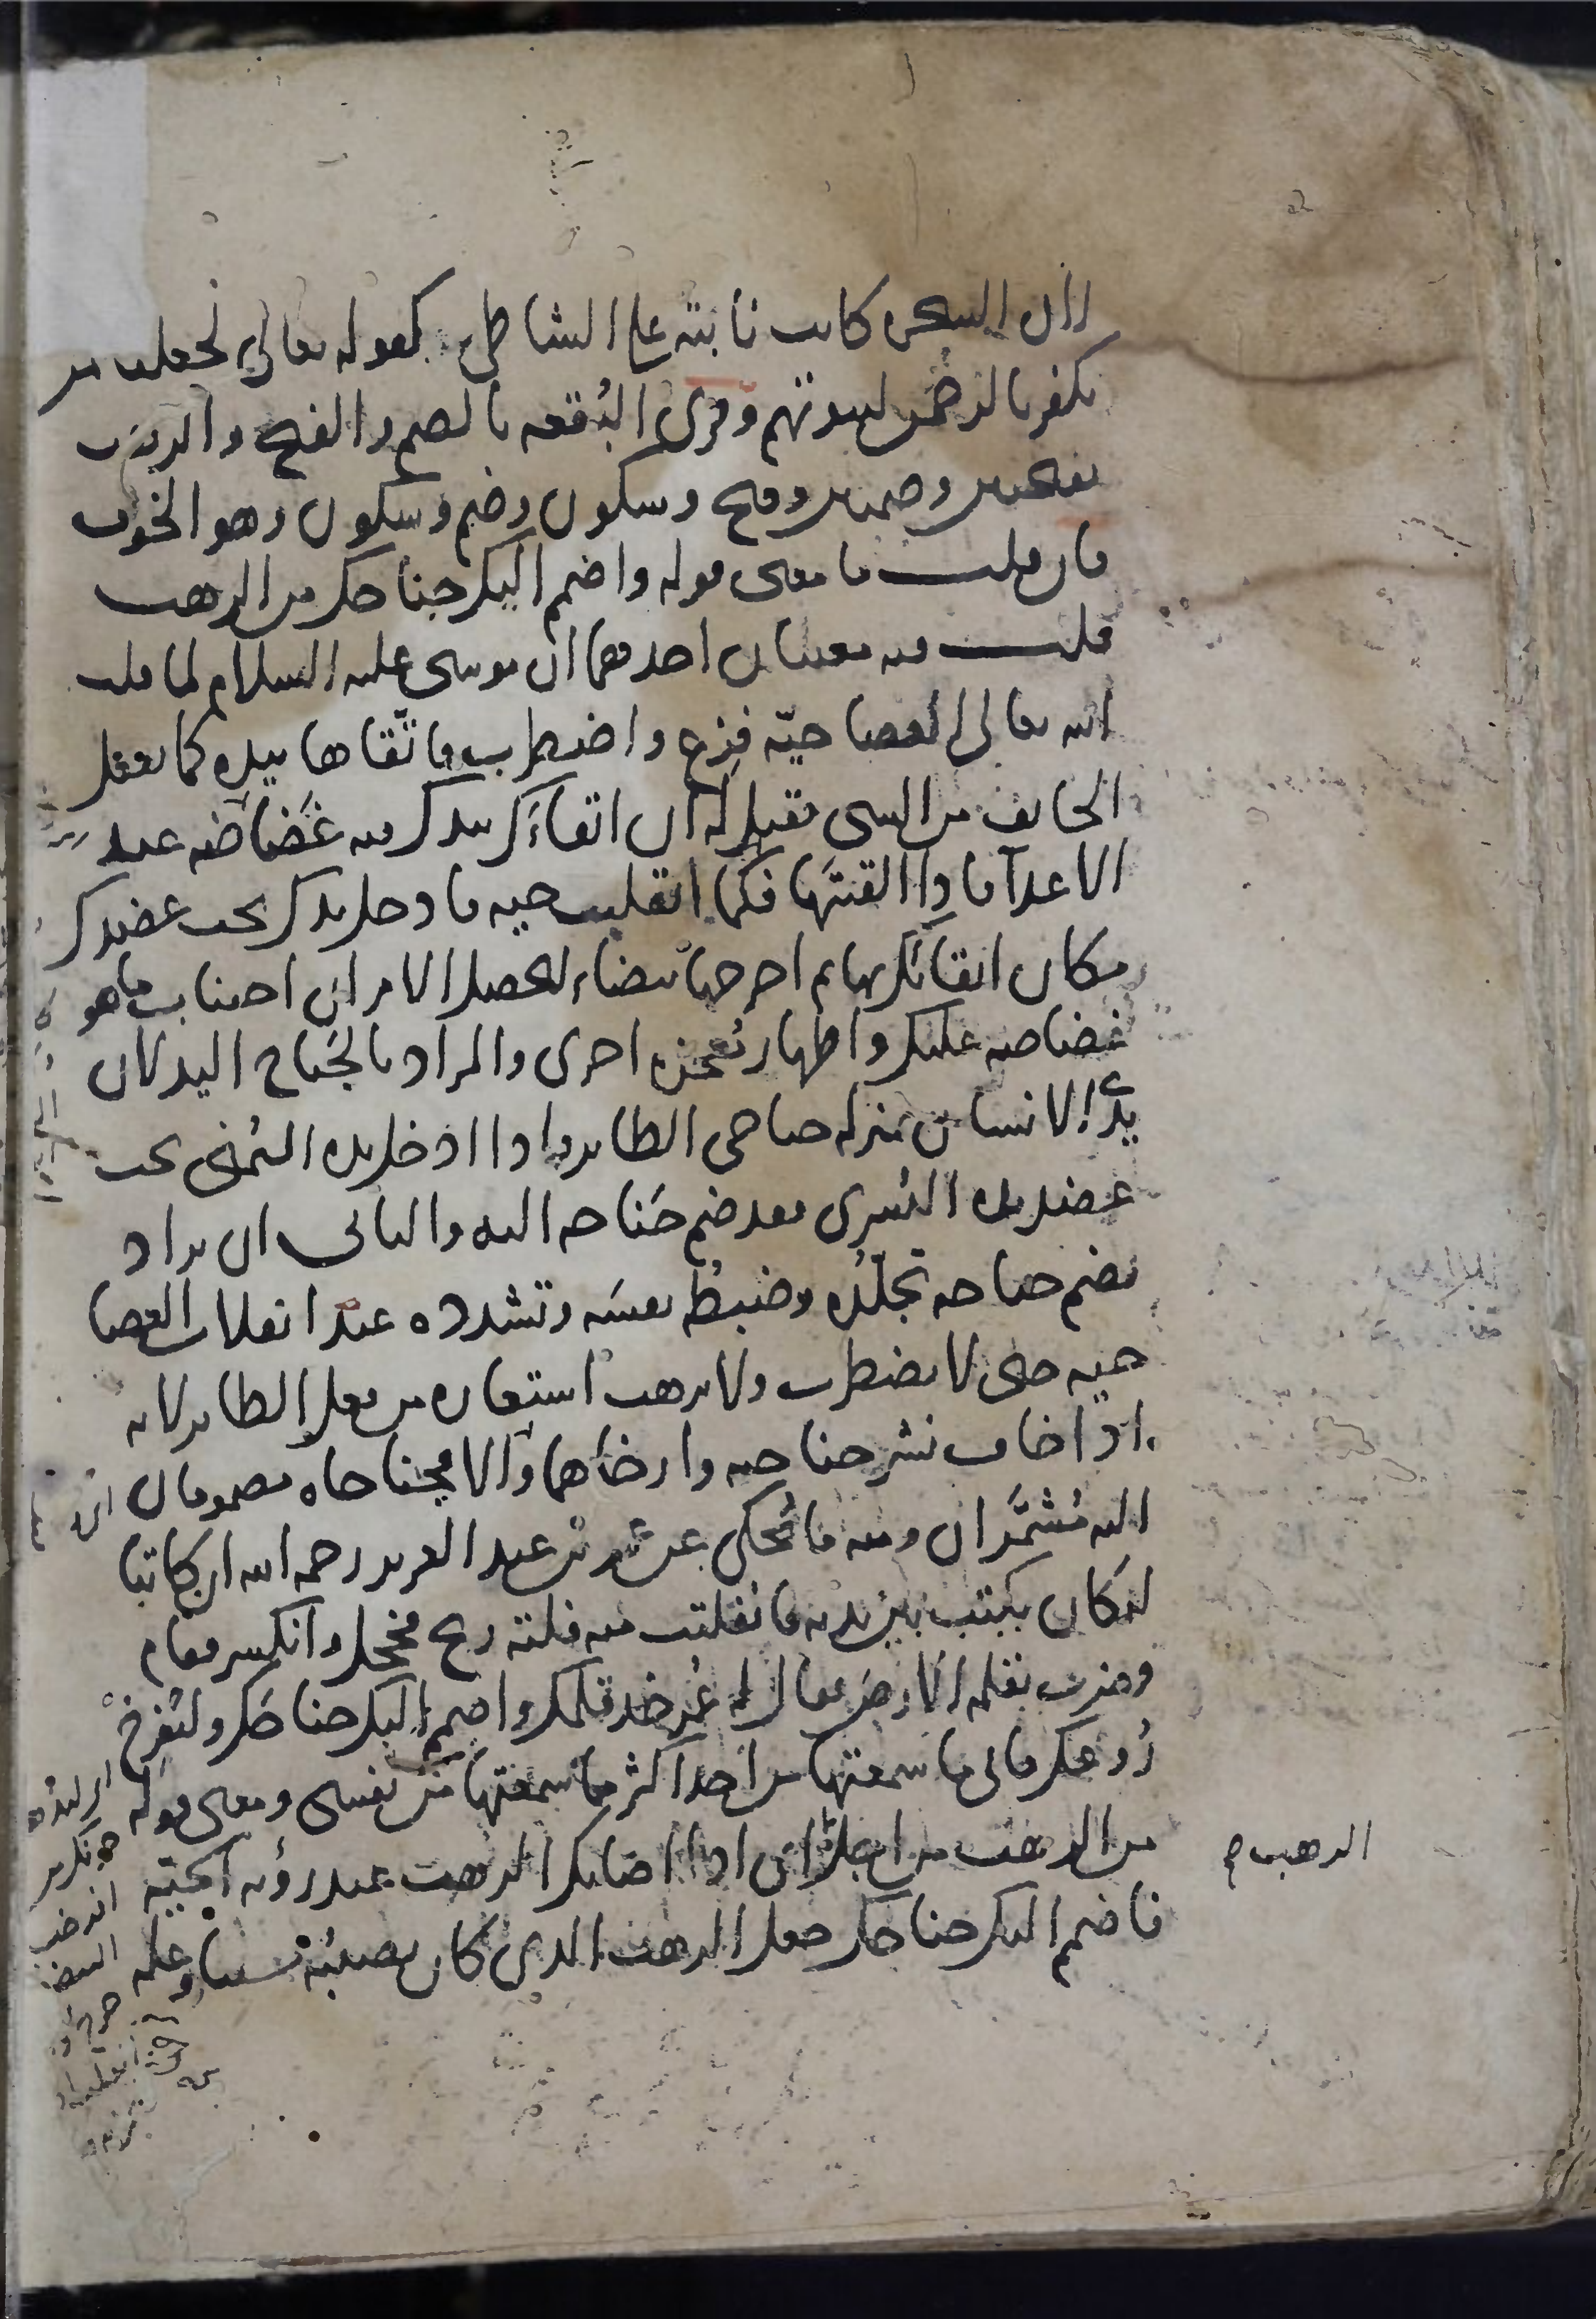 لأن الشجرة كانت نابتة على الشاطئ كقوله تعالى لجعلنا لمن
يكفر بالرحمن لبيوتهم وقرئ البُقعة بالضم والفتح والرهب
بفتحتين وضمتين وفتح وسكون وضم وسكون وهو الخوف
فان قلت ما معنى قوله واضمم اليك جناحك من الرهب
قلت فيه معنيان احدهما ان موسى عليه السلام لما قلب
الله تعالى العصا حيّة فزع واضطرب فاتّقاها بيده كما يفعل
الخايف من الشى فقيل له ان اتقاءَك بيدك فيه غَضَاضة عند
الاعدآ فاذا القيتَها فكما انقلبت حية فادخل يدك تحت عضدك
مكان اتقائك بها ثم اخرجها بيضاء ليحصل الامران اجتناب ما هو
غضاضة عليك واظهار معجزة اخرى والمراد بالجَناح اليد لان
يدَىِ الانسان بمنزلة جناحى الطاير واذا ادخل يده اليُمنى تحت
عضد يده اليُسرى فقد ضم جَناحه اليه والثانى ان يراد
بضم جناحه تجلّدُه وضبطُه نفسَه وتشدده عند انقلاب العصا
حية حتى لا يضطرب ولا يرهب استعارة من فعل الطاير لانه
اذا خاف نشر جناحيه وارخاهما والا فجناحاه مضمومان
اليه مُشمَّران ومنه ما يُحكى عن عُمر بن عبد العزيز رحمه الله ان كاتبا
له كان يكتب بين يديه فانفلتت منه فلتة ريح فخجل وانكسر فقام
وضرب بقلمه الارض فقال له عُمر خذ قلمك واضمم اليك جناحَك وليُفرِخْ
رُوعك فانى ما سمعتها من احد اكثر مما سمعتها من نفسى ومعنى قوله
من الرهب من اجل الرهب م اى اذا اصابك الرهب عند رؤية الحيّة
فاضمم اليك جناحك جعل الرهب الذى كان يصيبُه سببا وعلة